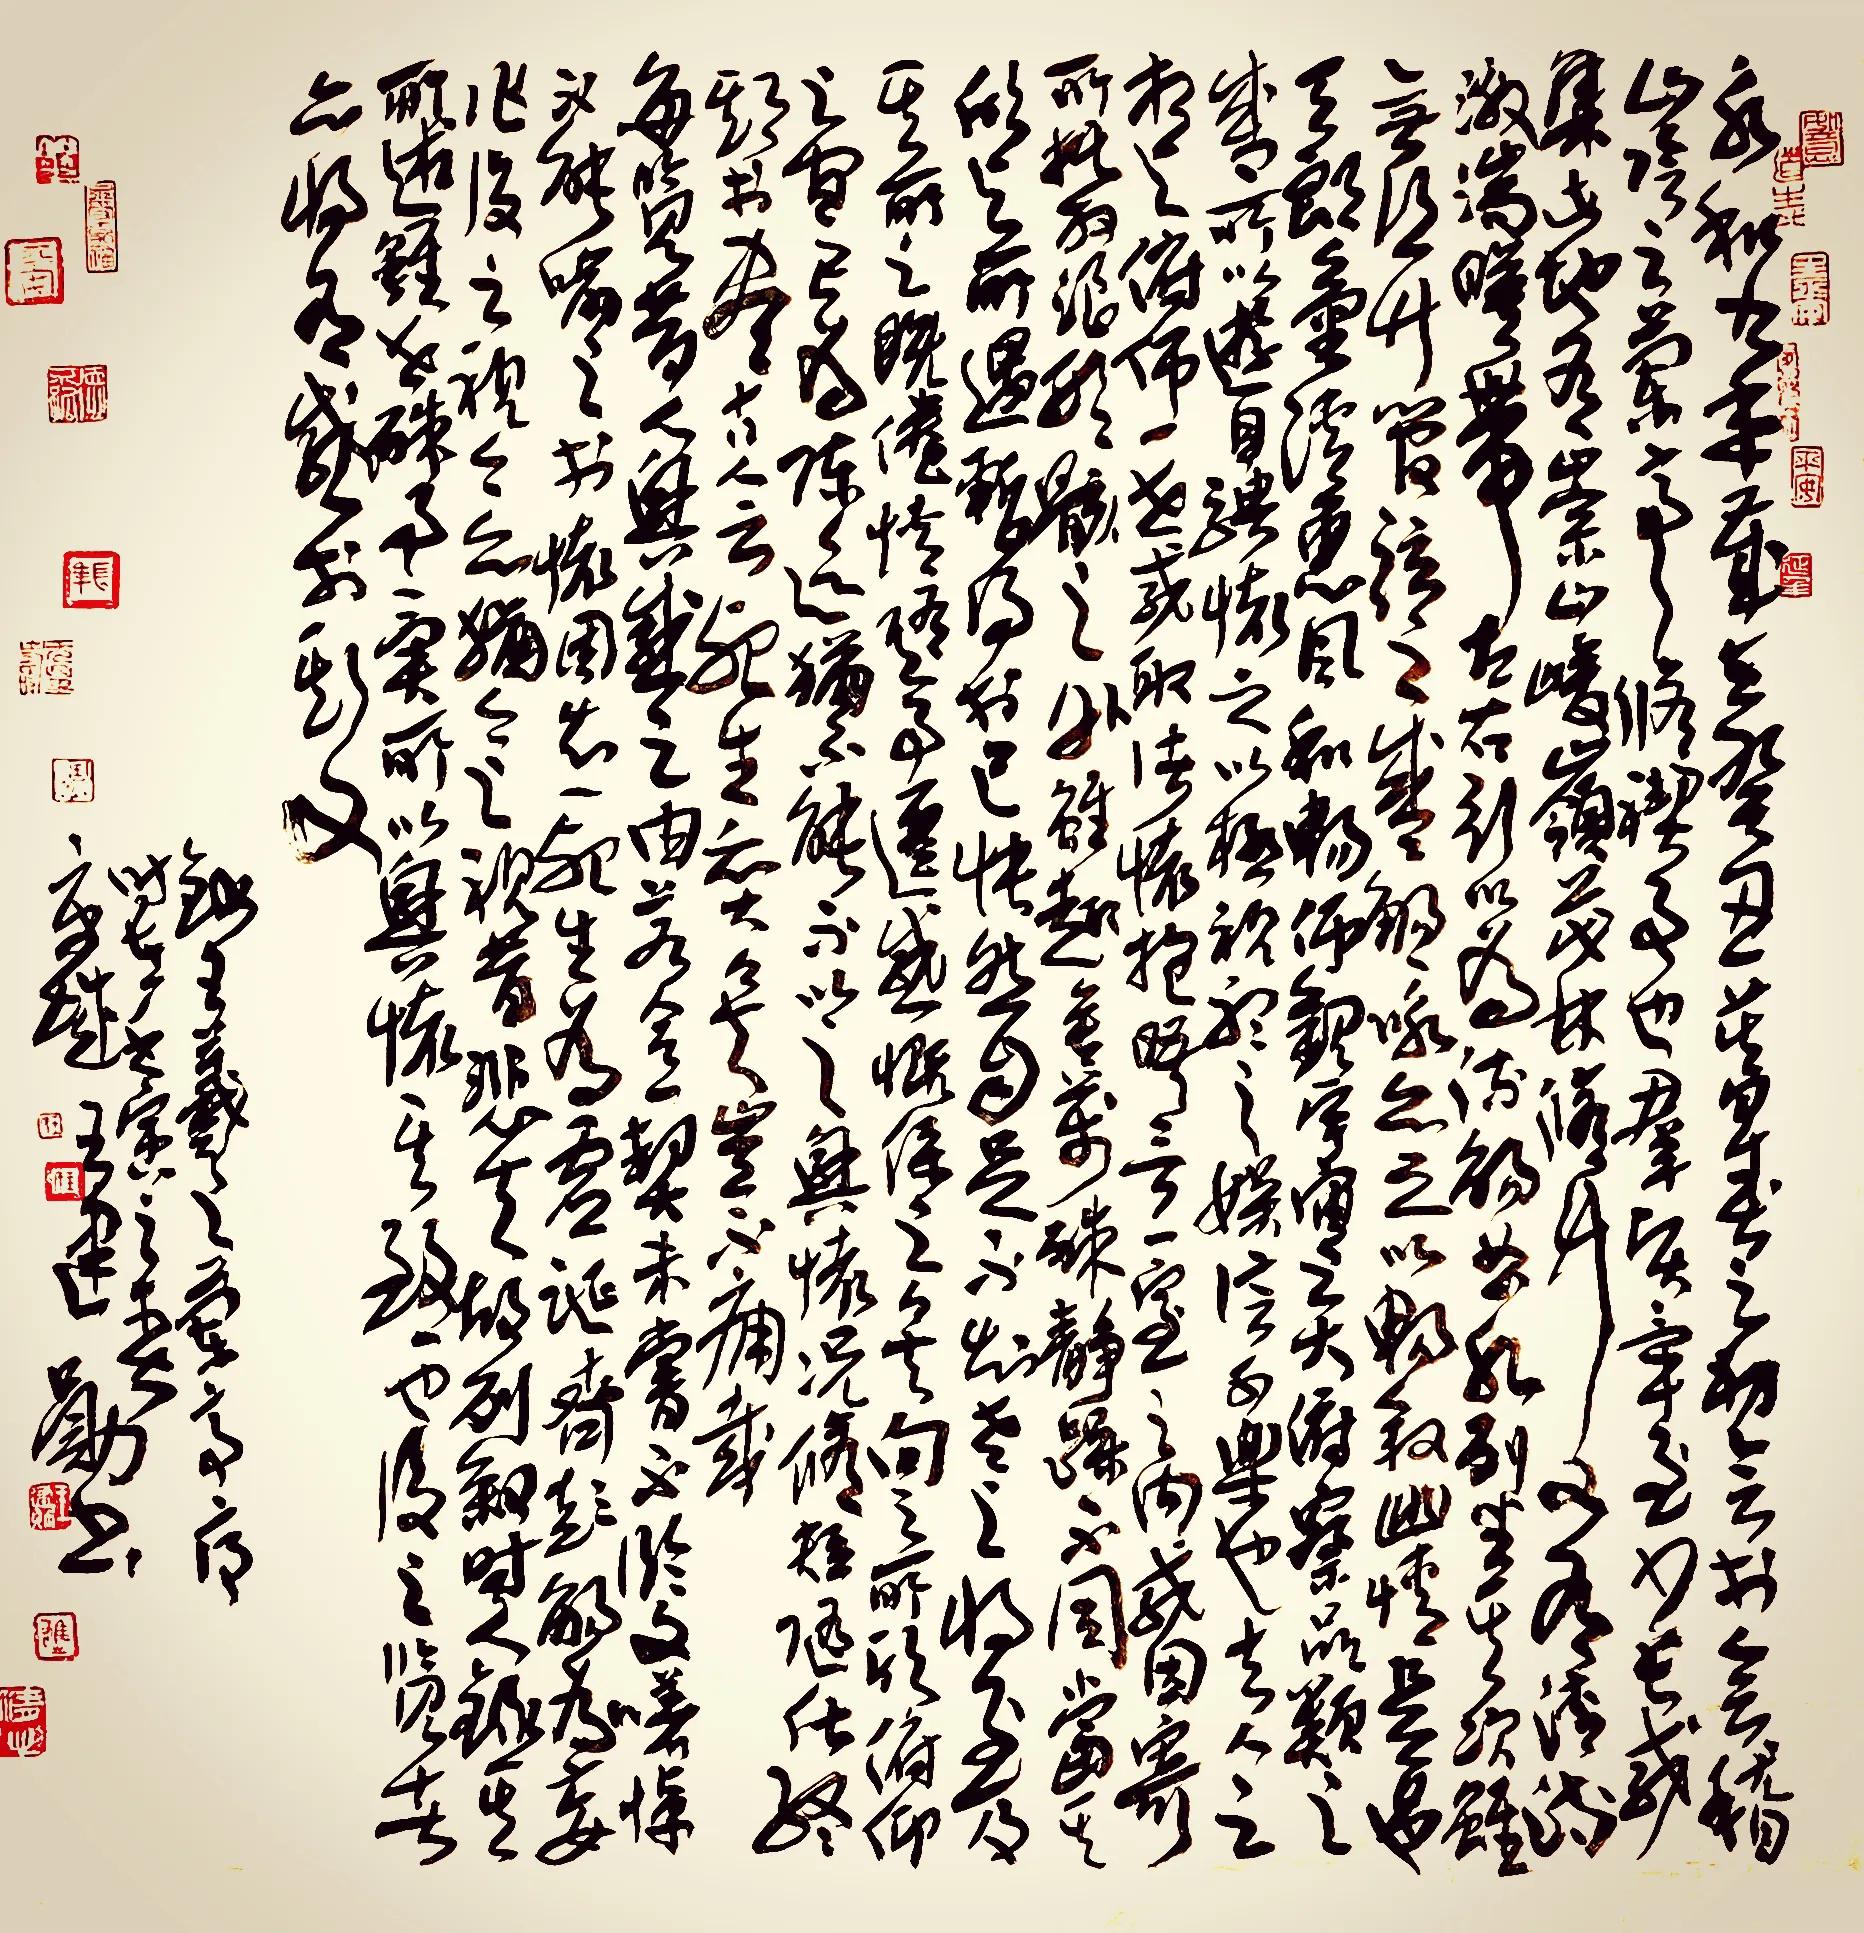 永和九年歲在癸丑暮春之初會於會稽
山陰之蘭亭修禊事也群賢畢至少長咸
集此地有崇山峻嶺茂林修竹又有清流
激湍暎帶左右引以為流觴曲水列坐其次雖
無絲竹管弦之盛觴詠亦足以暢敘幽情是日也
天朗氣清惠風和暢仰觀宇宙之大俯察品類之
盛所以遊目騁懷足以極視聽之娛信可樂也夫人之
相與俯仰一世或取諸懷抱悟言一室之內或因寄
所託放浪形骸之外雖趣舍萬殊靜躁不同當其
欣於所遇暫得於己快然自足不知老之將至及
其所之既倦情隨事遷感慨係之矣向之所欣俯仰
之間已為陳迹猶不能不以之興懷況修短隨化終
期於盡古人云死生亦大矣豈不痛哉
每覽昔人興感之由若合一契未嘗不臨文嗟悼
不能喻之於懷固知一死生為虛誕齊彭殤為妄
作後之視今亦猶今之視昔悲夫故列敘時人錄其
所述雖世殊事異所以興懷其致一也後之覽者
亦將有感於斯文
錄王羲之蘭亭序
時寅之
京城 王建勛書